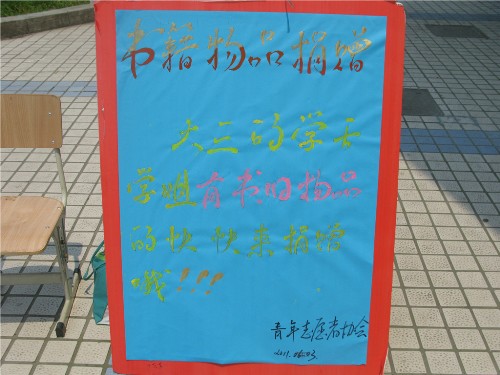 书籍物品捐赠
大三的学长
学姐有书的物品
的快快来捐赠
哦!!!
青年志愿者协会